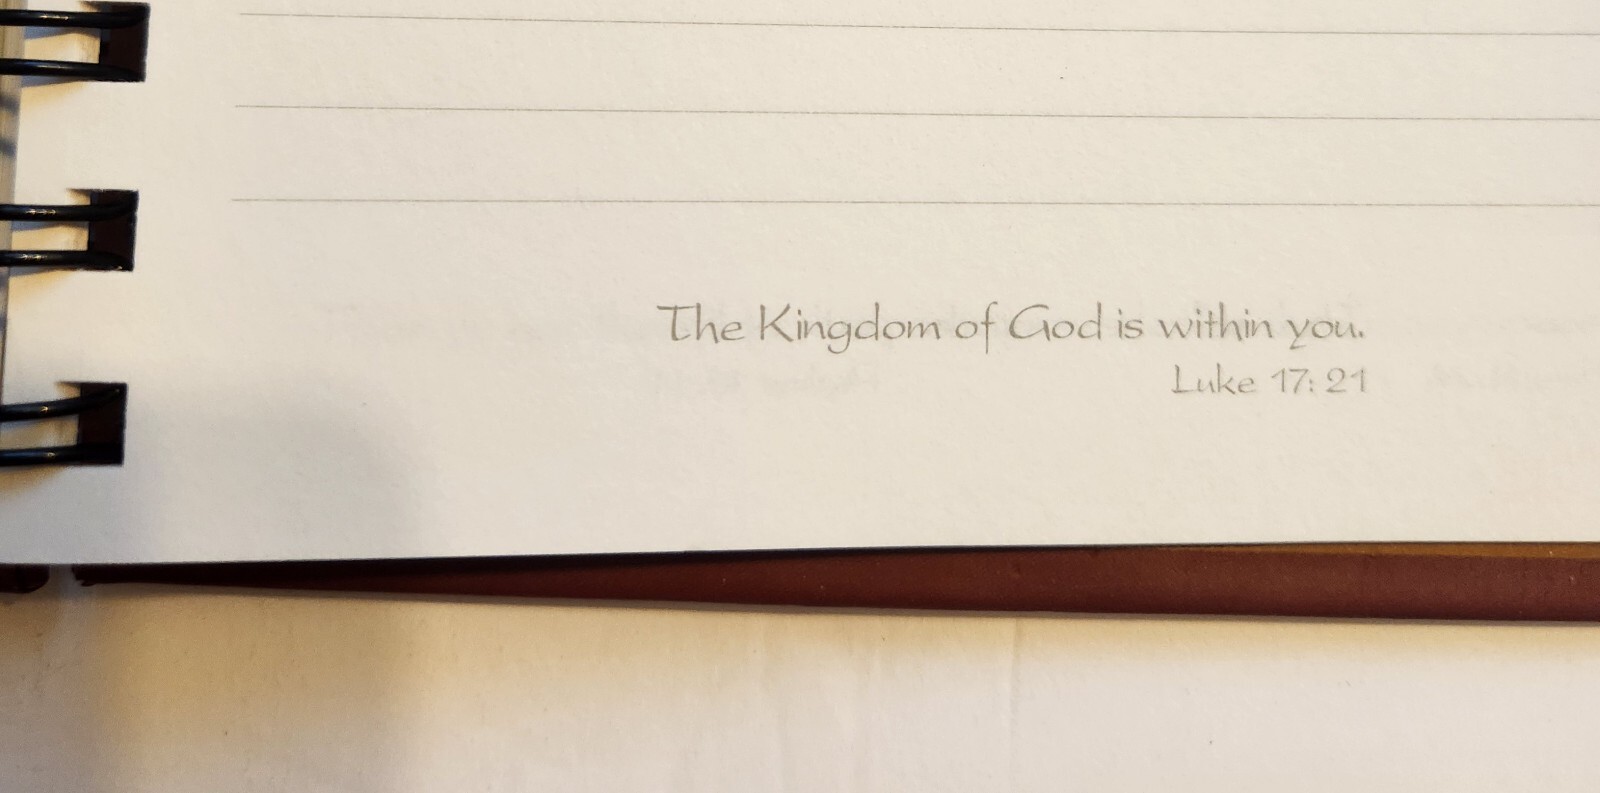 The Kingdom of God is within you.
Luke 17: 21